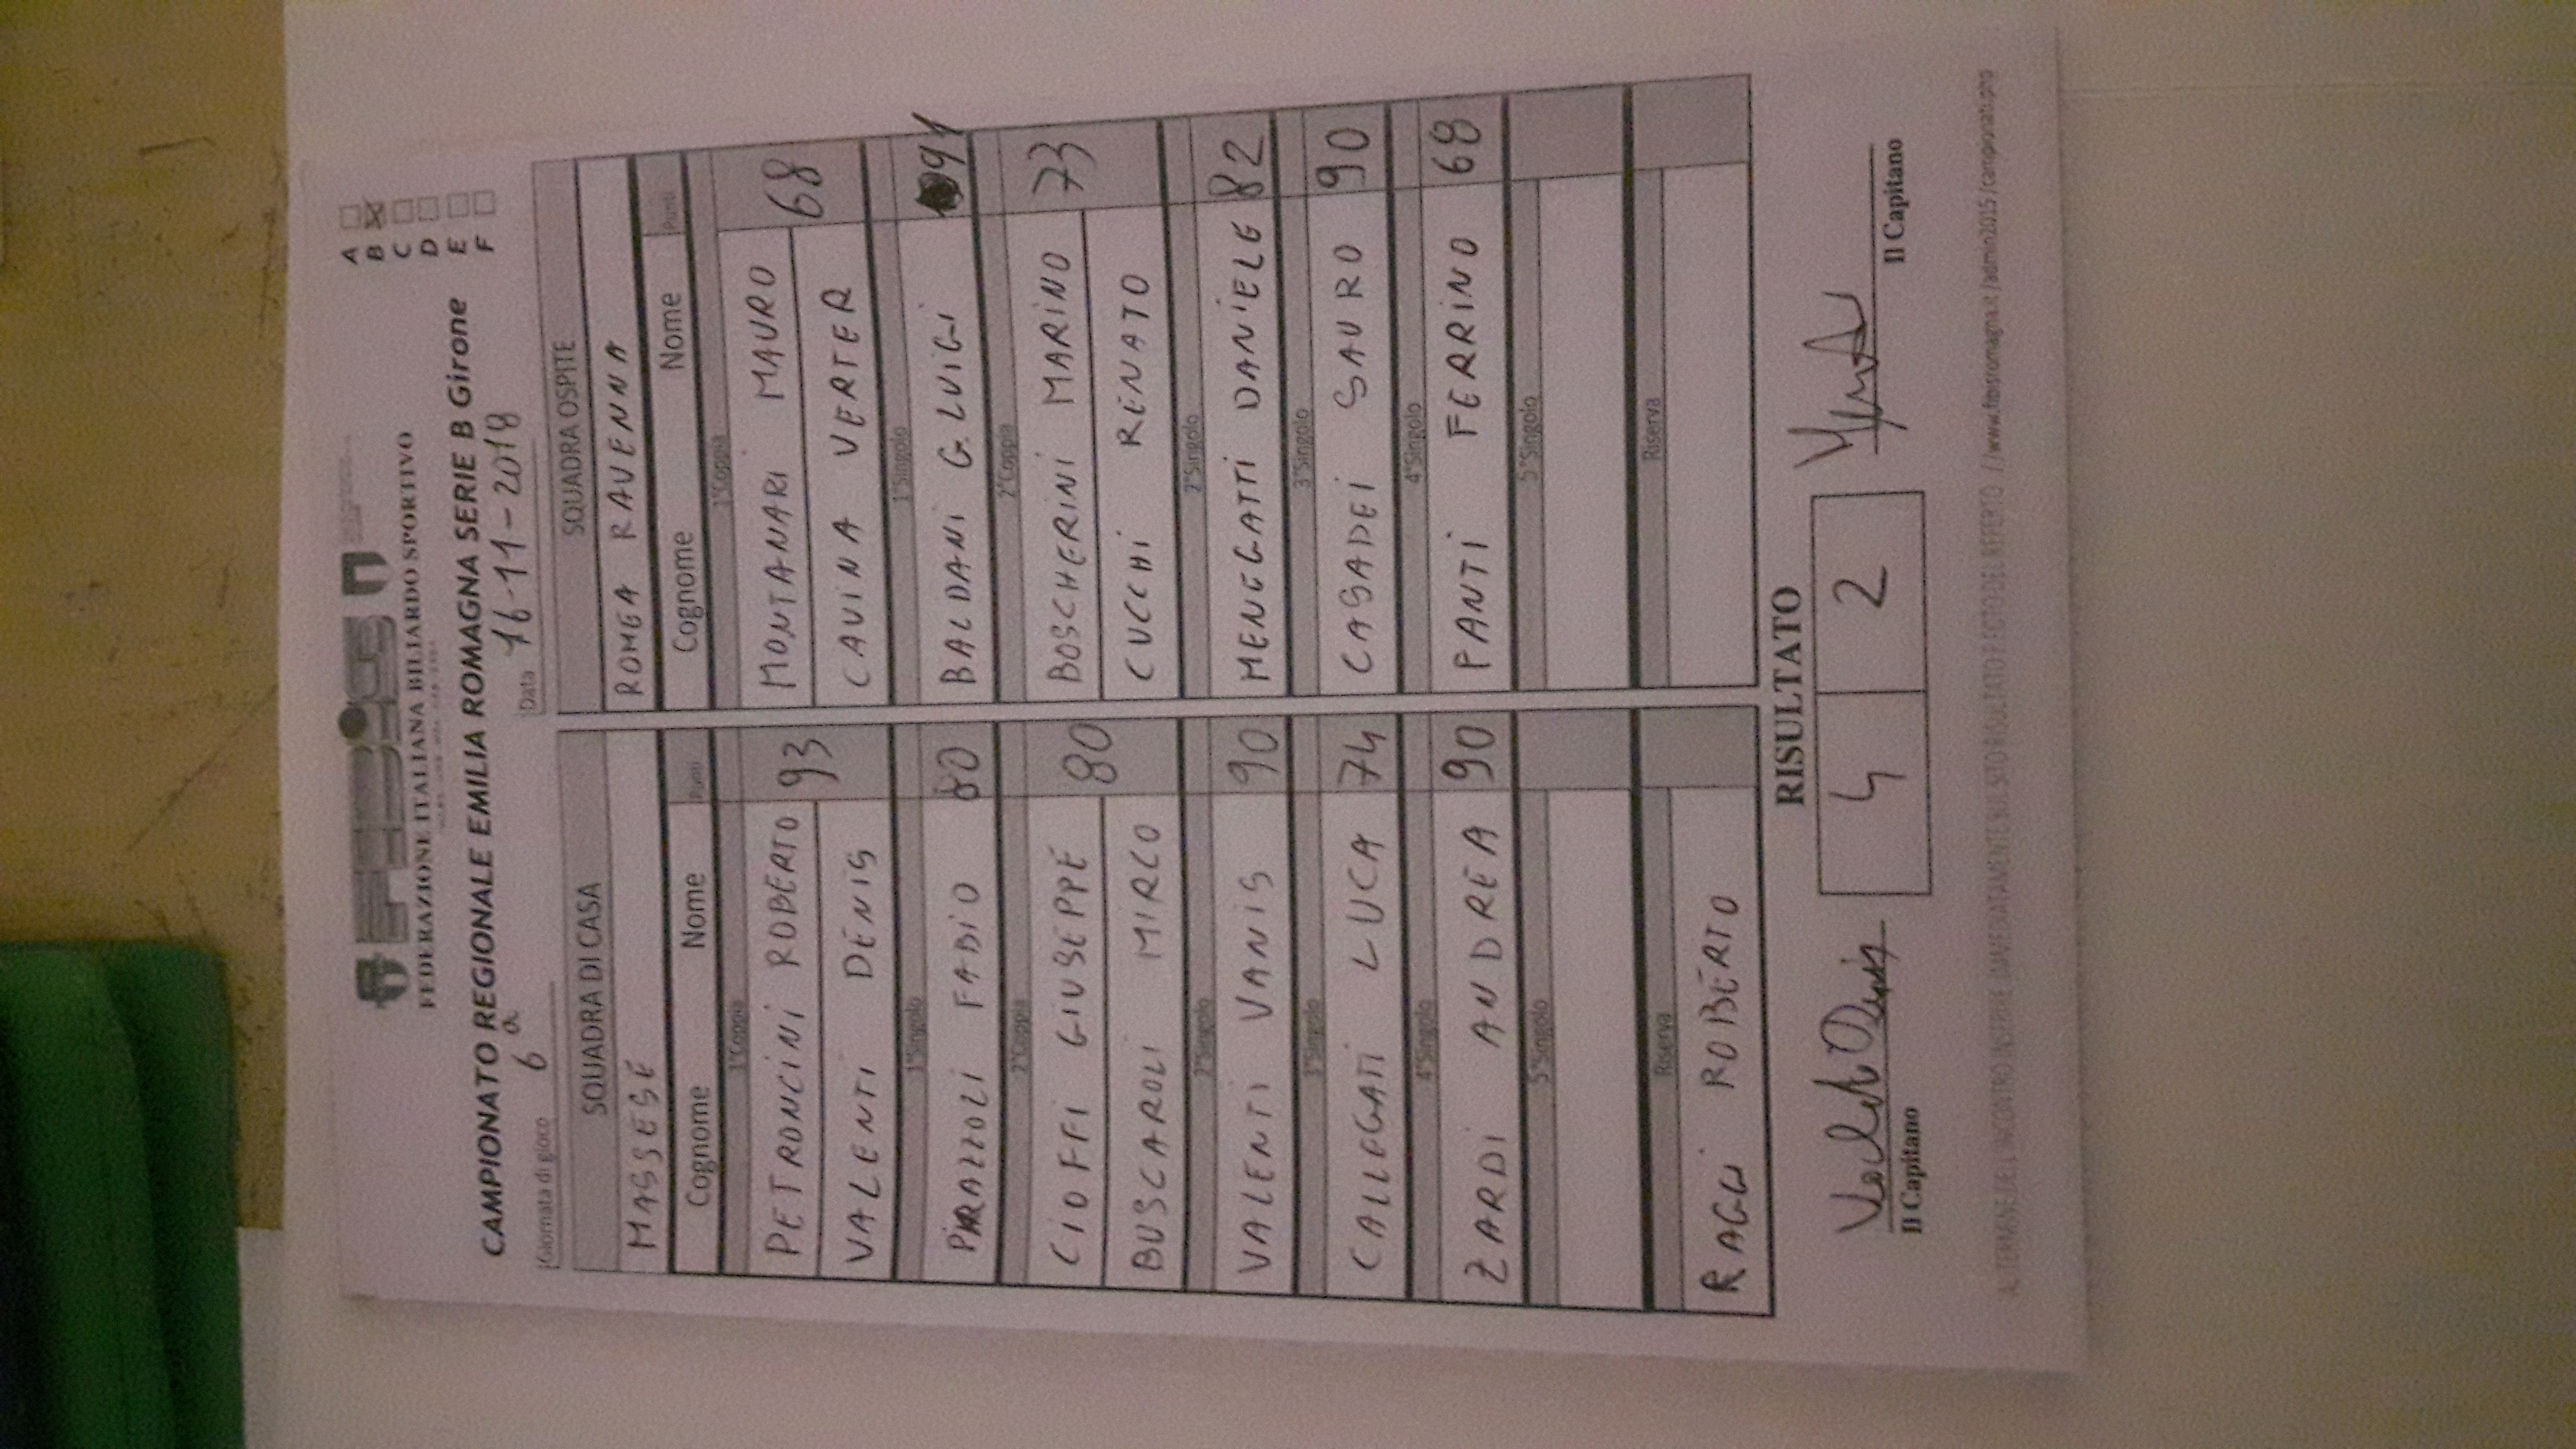 FEDERAZIONE ITALIANA BILIARDO SPORTIVO
CAMPIONATO REGIONALE EMILIA ROMAGNA SERIE B Girone
A
B
C
D
E
F
Giornata di gioco 6a Data 16-11-2018
SQUADRA DI CASA SQUADRA OSPITE
MASSESE ROMEA RAVENNA
Cognome Nome Punti Cognome Nome Punti
1°Coppia 1°Coppia
PETRONCINI ROBERTO 93 MONTANARI MAURO 68
VALENTI DENIS CAVINA VERTER
1°Singolo 1°Singolo
PIRAZZOLI FABIO 80 BALDANI G. LUIGI 91
2°Coppia 2°Coppia
CIOFFI GIUSEPPE 80 BOSCHERINI MARINO 73
BUSCAROLI MIRCO CUCCHI RENATO
2°Singolo 2°Singolo
VALENTI VANIS 90 MENEGATTI DANIELE 82
3°Singolo 3°Singolo
CALLEGATI LUCA 74 CASADEI SAURO 90
4°Singolo 4°Singolo
ZARDI ANDREA 90 PANTI FERRINO 68
5°Singolo 5°Singolo
Riserva Riserva
RAGGI ROBERTO
RISULTATO
4 2
Il Capitano Il Capitano
AL TERMINE DELL'INCONTRO INSERIRE IMMEDIATAMENTE SUL SITO RISULTATO E FOTO DEL REFERTO //www.fibisromagna.it/admin2015/campionati.php